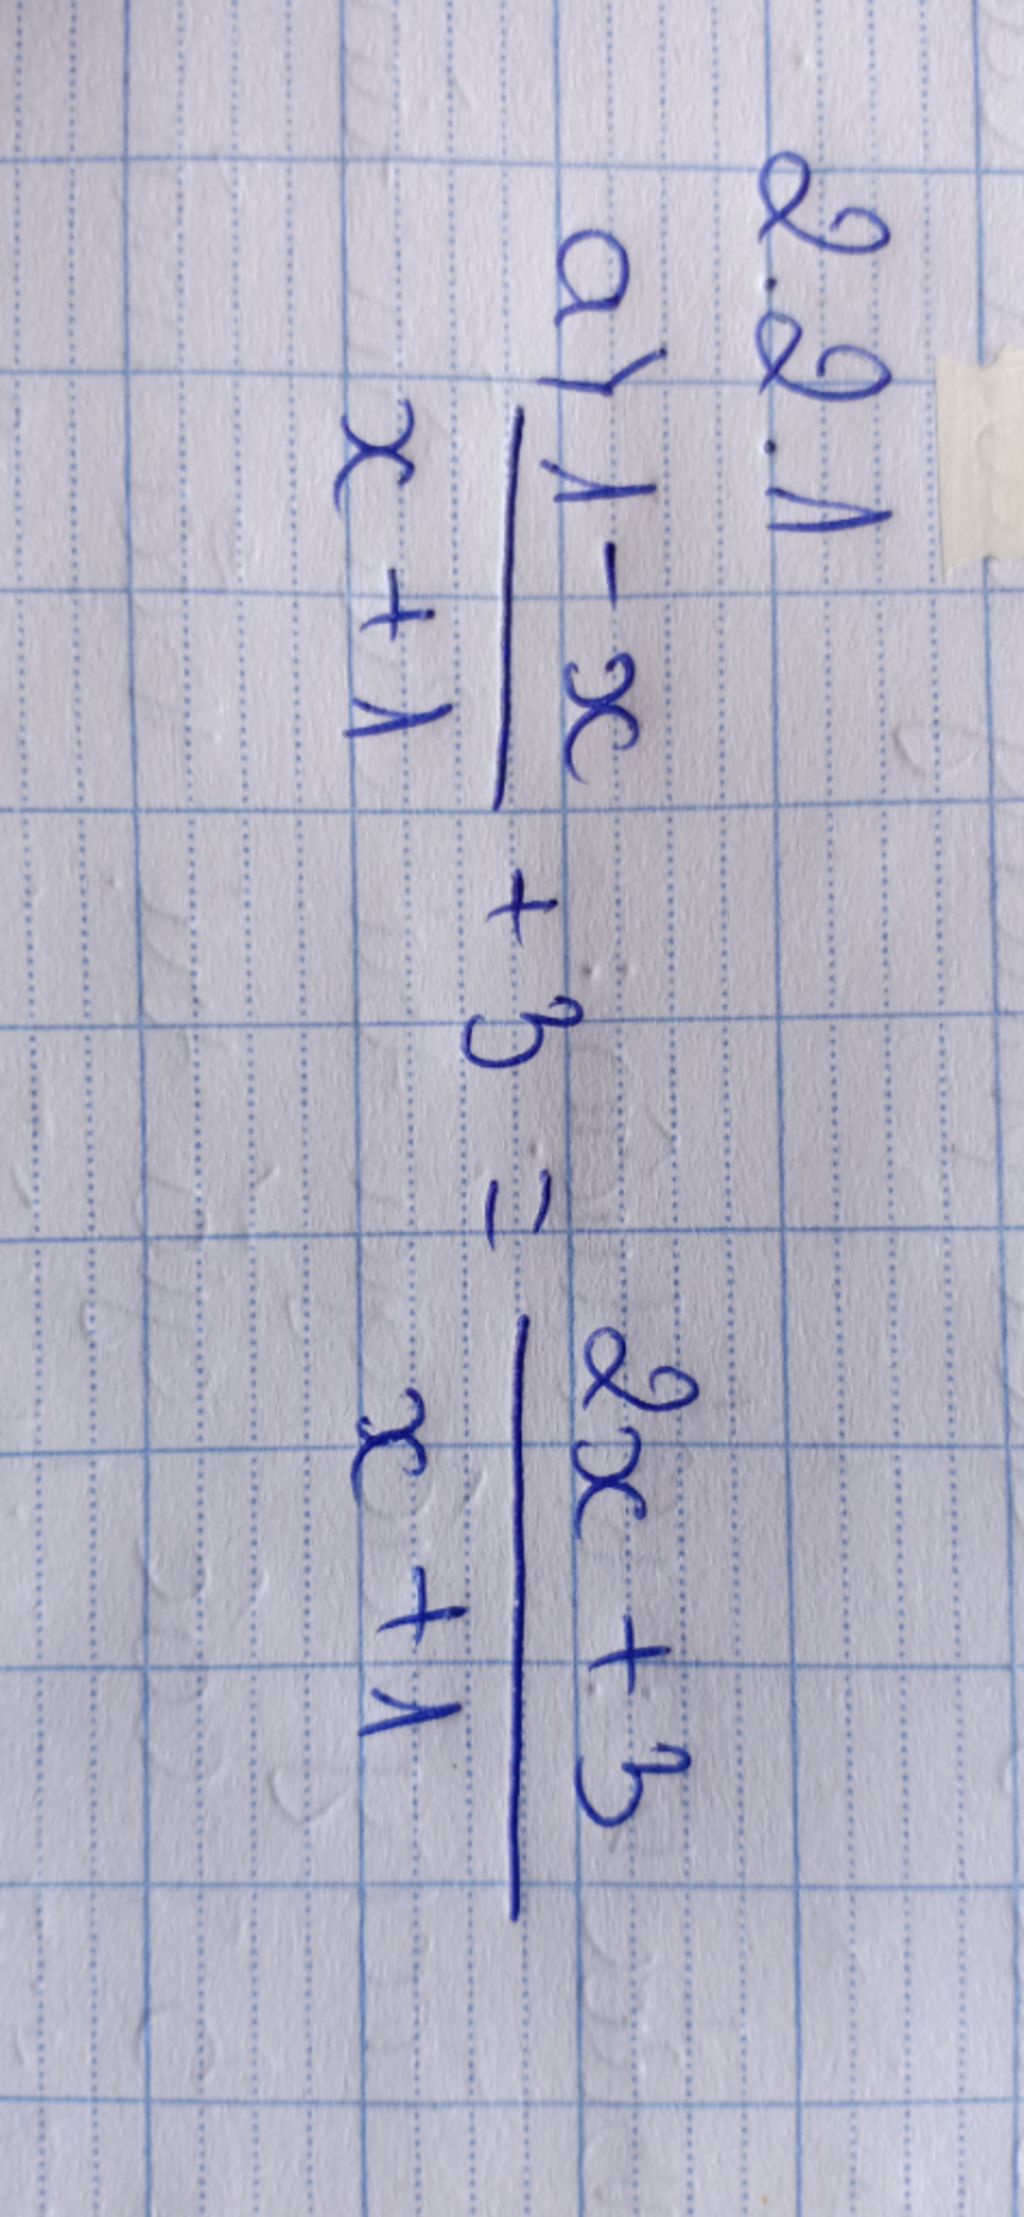 2.2.1
a) (1 - x)/(x + 1) + 3 = (2x + 3)/(x + 1)